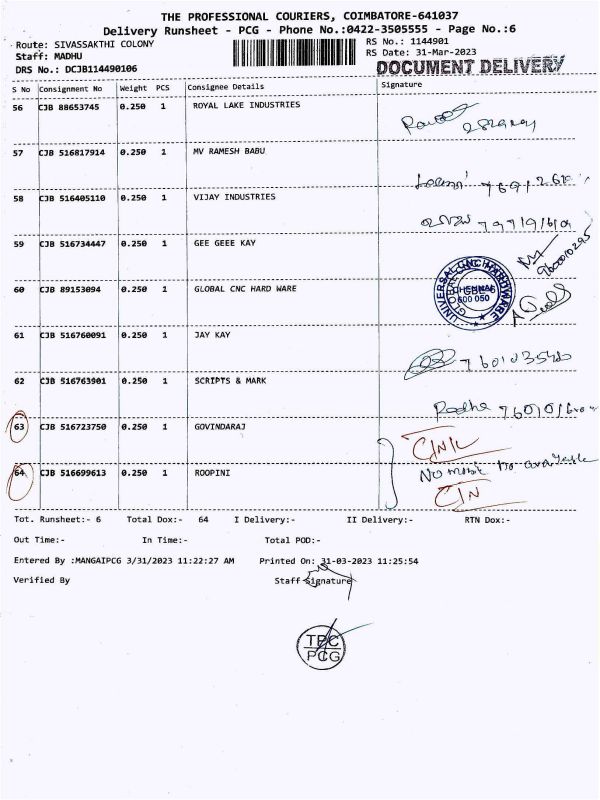 THE PROFESSIONAL COURIERS, COIMBATORE-641037
Delivery Runsheet - PCG - Phone No.:0422-3505555 - Page No.:6
Route: SIVASSAKTHI COLONY
RS No.: 1144901
Staff: MADHU
RS Date: 31-Mar-2023
DRS No.: DCJB114490106
DOCUMENT DELIVERY
S No Consignment No Weight PCS Consignee Details Signature
56 CJB 88653745 0.250 1 ROYAL LAKE INDUSTRIES
57 CJB 516817914 0.250 1 MV RAMESH BABU
58 CJB 516405110 0.250 1 VIJAY INDUSTRIES
59 CJB 516734447 0.250 1 GEE GEEE KAY
9600010295
60 CJB 89153094 0.250 1 GLOBAL CNC HARD WARE
UNIVERSAL CNC HARDWARE
CHENNAI
600 050
61 CJB 516760091 1 0.250 JAY KAY
62 CJB 516763901 0.250 1 SCRIPTS & MARK
Radha
63 CJB 516723750 0.250 1 GOVINDARAJ
64 CJB 516699613 0.250 1 ROOPINI
No
CIN
Tot. Runsheet:- 6 Total Dox:- 64 I Delivery:- II Delivery:- RTN Dox:-
Out Time:- In Time:- Total POD:-
Entered By :MANGAIPCG 3/31/2023 11:22:27 AM Printed On: 31-03-2023 11:25:54
Verified By Staff Signature
TPC
PCG